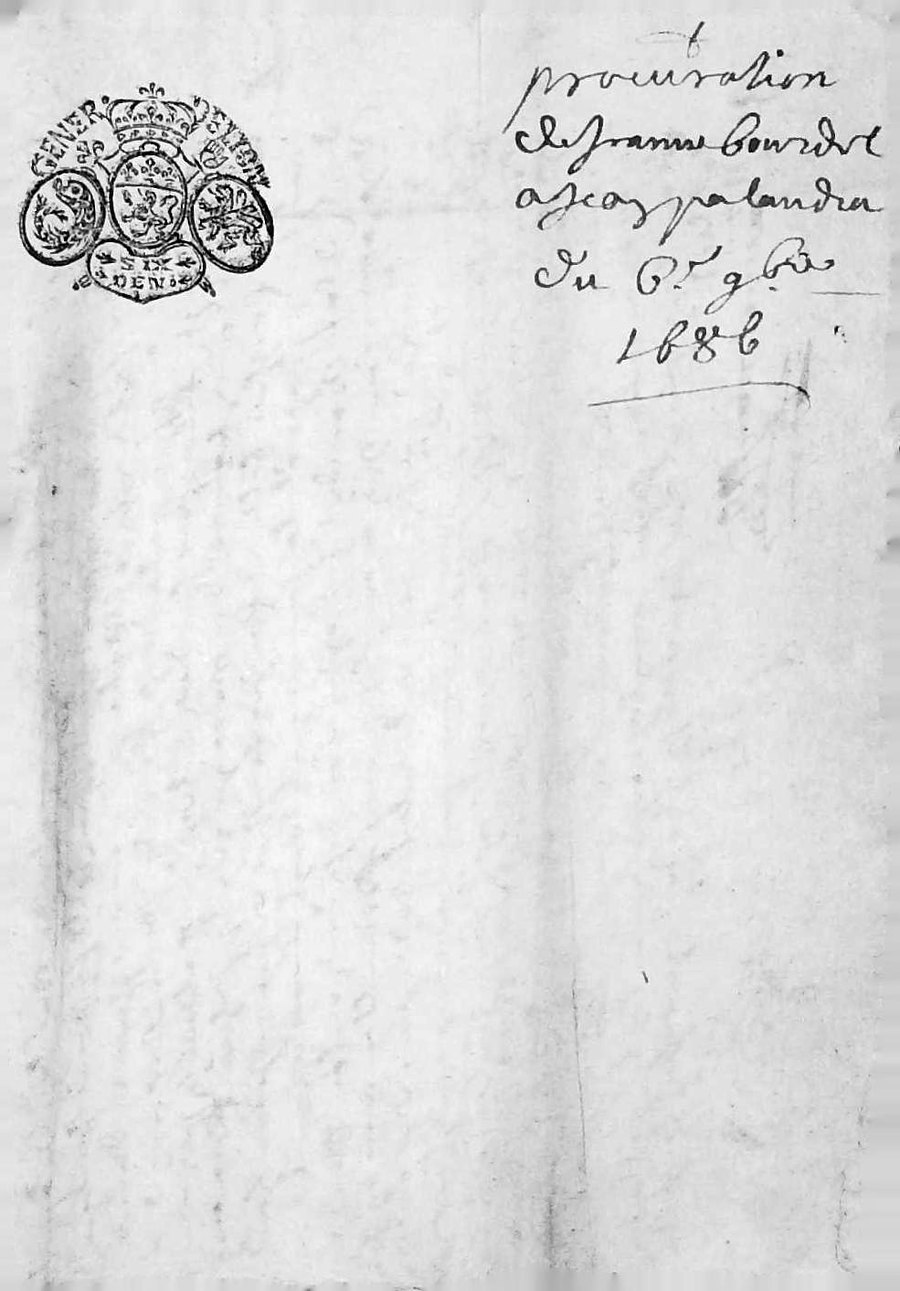 GENER. DE LYON
SIX
DEN.
procuration
de Jeanne bourdel
a Jean palandra
du 6e 9bre
1686